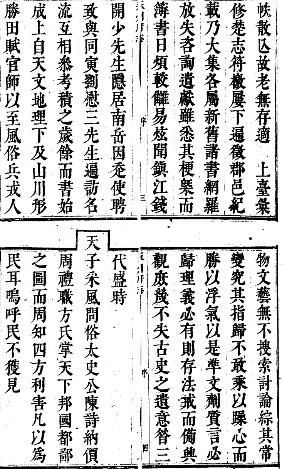 帙散亾故老無存適　上臺彚
修楚志符檄屢下遍徵郡邑紀
載乃大集各屬新舊諸書網羅
放失咨詢遺獻雖悉其梗槩而
簿書日煩較讎易炫聞鎮江錢
序
三
開少先生隱居南岳因耑使聘
致與同寅劉慰三先生遍訪名
流互相叅考積之歲餘而書始
成上自天文地理下及山川形
勝田賦官師以至風俗兵戎人
物文藝無不搜索討論綜其常
變究其指歸不敢乘以躁心而
勝以浮氣以是準文劑質言必
歸理義必有則存法戒而備興
觀庶幾不失古史之遺意昔三
序
四
代盛時
天子采風問俗太史公陳詩納價
周禮職方氏掌天下邦國都鄙
之圖而周知四方利害凡以為
民耳嗚呼民不獲見